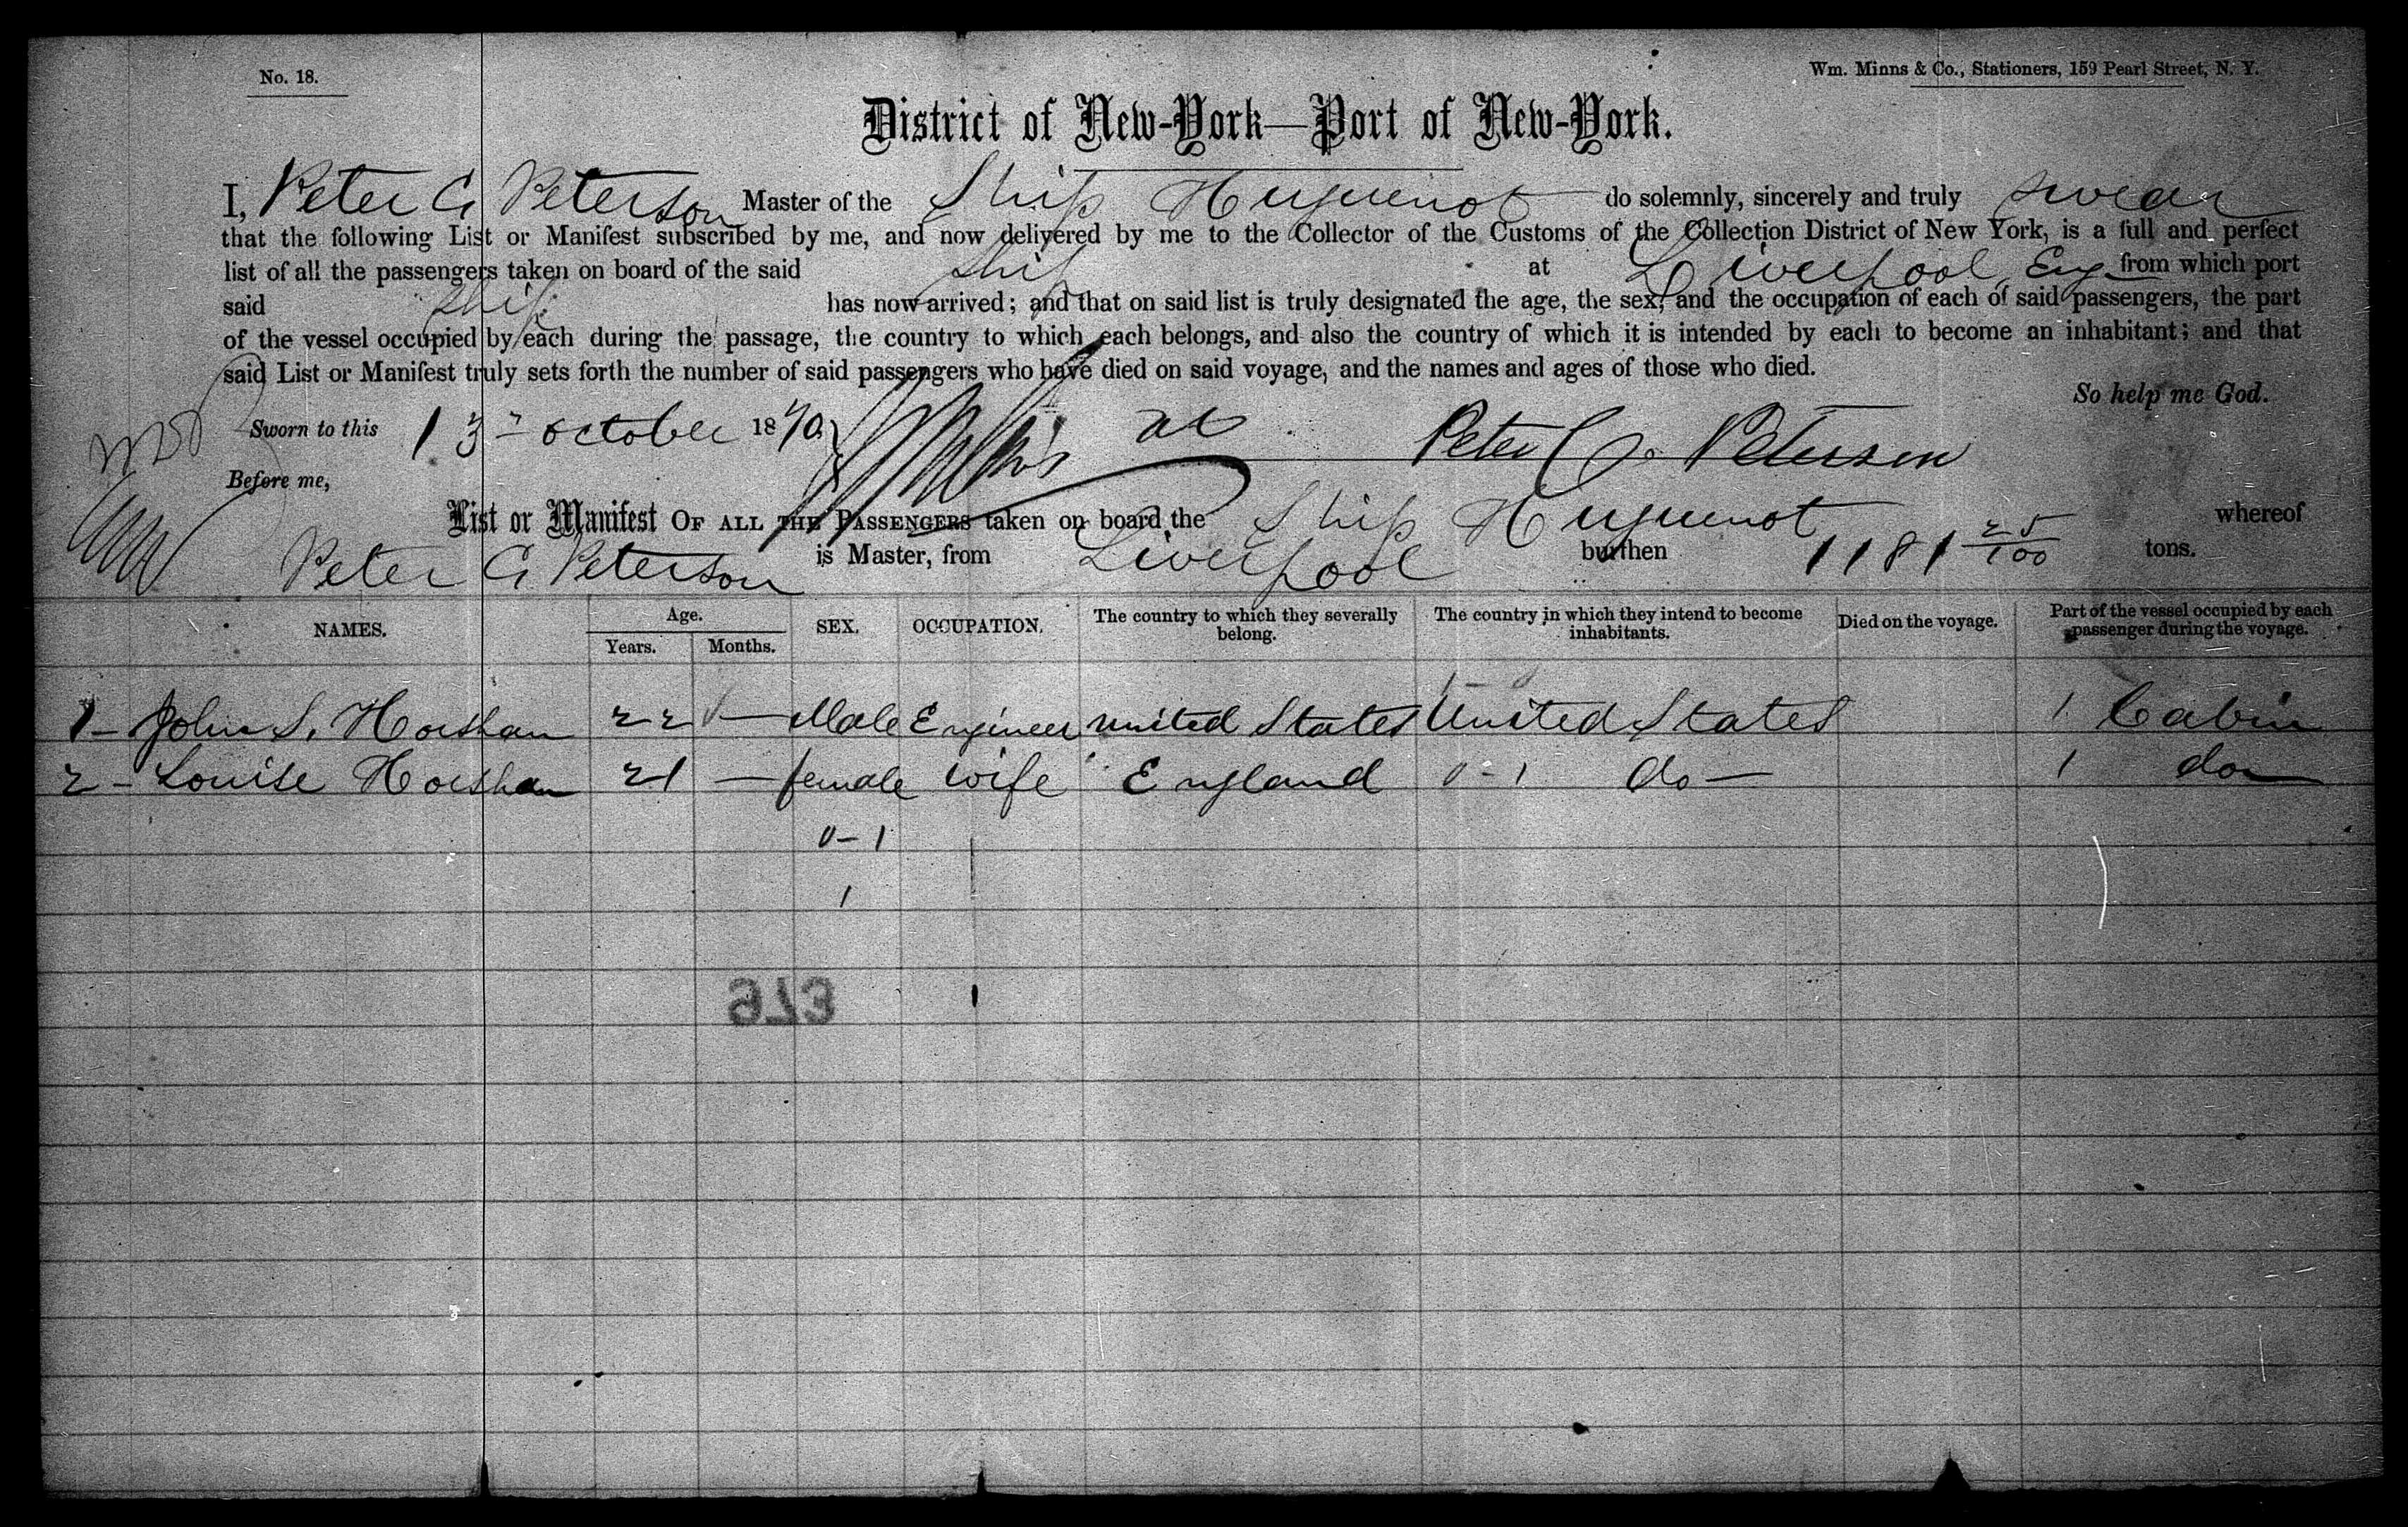 No. 18.
Wm. Minns & Co., Stationers, 159 Pearl Street, N. Y.
District of New-York—Port of New-York.
I, Peter C. Peterson Master of the Ship Huguenot do solemnly, sincerely and truly swear
that the following List or Manifest subscribed by me, and now delivered by me to the Collector of the Customs of the Collection District of New York, is a full and perfect
list of all the passengers taken on board of the said ship at Liverpool, Eng from which port
said ship has now arrived; and that on said list is truly designated the age, the sex, and the occupation of each of said passengers, the part
of the vessel occupied by each during the passage, the country to which each belongs, and also the country of which it is intended by each to become an inhabitant; and that
said List or Manifest truly sets forth the number of said passengers who have died on said voyage, and the names and ages of those who died.
So help me God.
Sworn to this 13 October 1870 Peter C. Peterson
Before me,
List or Manifest OF ALL THE PASSENGERS taken on board the Ship Huguenot whereof
Peter C. Peterson is Master, from Liverpool burthen 1181 25/100 tons.
NAMES. Age. Years. Months. SEX. OCCUPATION. The country to which they severally belong. The country in which they intend to become inhabitants. Died on the voyage. Part of the vessel occupied by each passenger during the voyage.
1 - John S. Horshan 22 — Male Engineer United States United States 1 Cabin
2 - Louise Horshan 21 — female wife England 0-1 do — 1 do
0-1
1
673